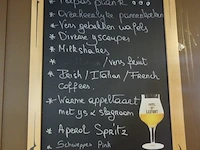 * Vers gebakken wafels
* Diverse ijscoupes
* Milkshakes
* /vers fruit
* Irish / Italian / French
coffees.
* Warme appeltaart
met ijs & slagroom
* Aperol Spritz
* Schweppes Pink